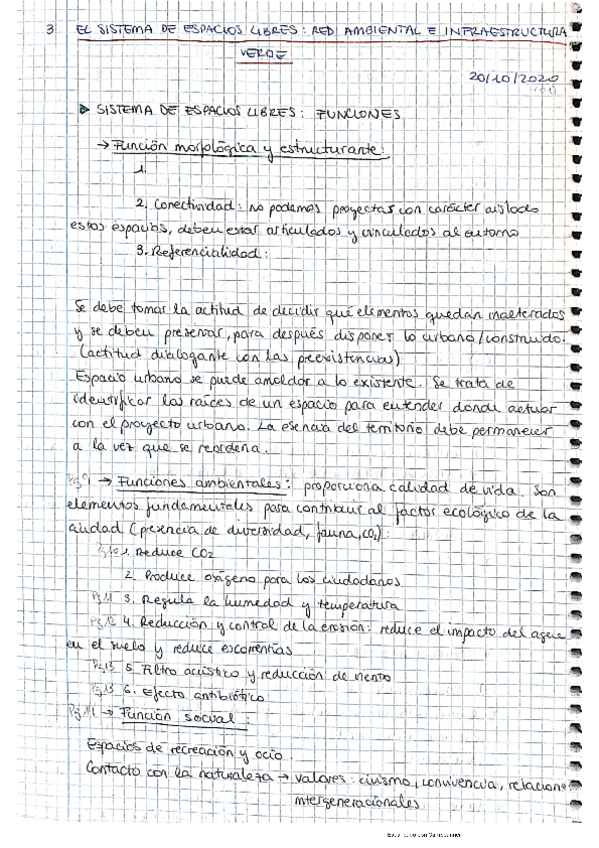 3 EL SISTEMA DE ESPACIOS LIBRES: RED AMBIENTAL E INFRAESTRUCTURA
VERDE
20/10/2020
▷ SISTEMA DE ESPACIOS LIBRES: FUNCIONES
→ Función morfológica y estructurante:
1.
2. Conectividad: No podemos proyectar con carácter aislado
estos espacios, deben estar articulados y vinculados al entorno
3. Referencialidad:
Se debe tomar la actitud de decidir qué elementos quedan inalterados
y se deben preservar, para después disponer lo urbano/construido.
(actitud dialogante con las preexistencias)
Espacio urbano se puede amoldar a lo existente. Se trata de
identificar las raíces de un espacio para entender donde actuar
con el proyecto urbano. La esencia del territorio debe permanecer
a la vez que se reordena.
Pg 9 → Funciones ambientales: proporciona calidad de vida. Son
elementos fundamentales para contribuir al factor ecológico de la
ciudad (presencia de diversidad, fauna, CO₂):
Pg 10 1. Reduce CO2
2. Produce oxígeno para los ciudadanos
Pg 11 3. Regula la humedad y temperatura
Pg 12 4. Reducción y control de la erosión: reduce el impacto del agua
en el suelo y reduce escorrentías
Pg 13 5. Filtro acústico y reducción de viento
Pg 13 6. Efecto antibiótico
Pg 14 → Función social:
Espacios de recreación y ocio.
Contacto con la naturaleza → valores: civismo, convivencia, relaciones
intergeneracionales